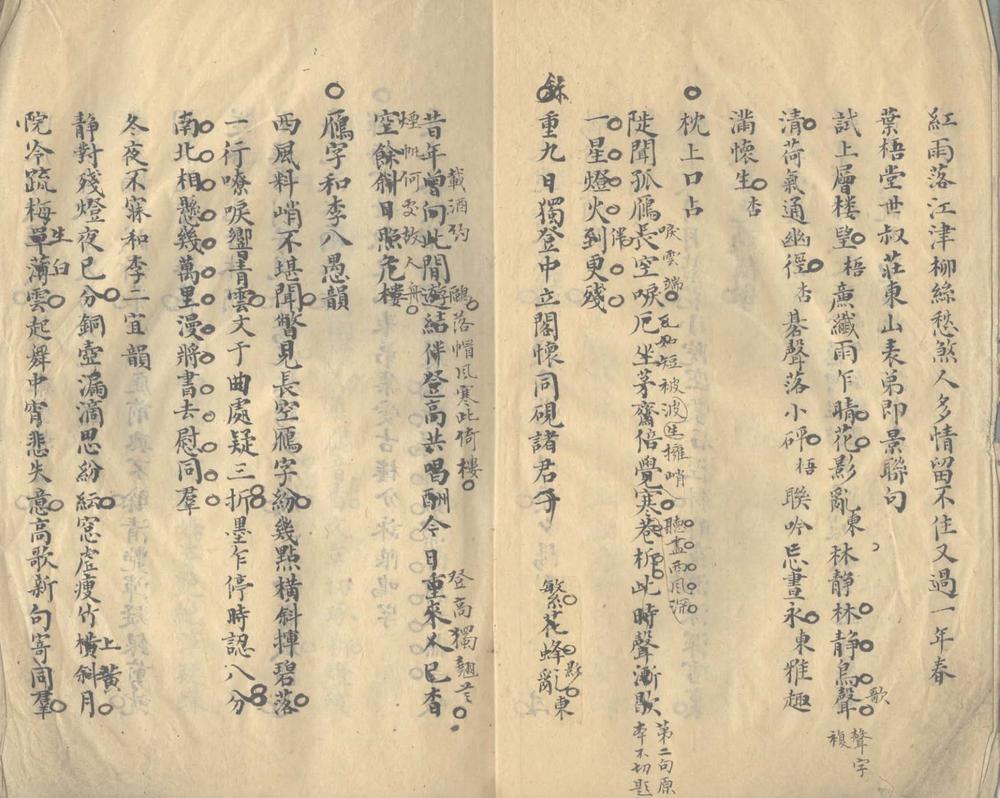 紅雨落江津柳絲愁煞人多情留不住又過一年春
葉梧堂世叔莊東山表弟即景聯句
試上層樓望梧廉纖雨乍晴花影亂東林靜林靜鳥聲
歌
聲字
複
清荷氣通幽徑杏碁聲落小砰梧聯吟忘晝永東雅趣
滿懷生杏
枕上口占
唳雲端
瓦和短被
擁峭
聽盡雨風深
陡聞孤雁長空唳厄坐茅齋倍覺寒巷柝此時聲漸歇
第二句原
本不切題
一星燈火到更殘
繁花蜂亂東
影
重九日獨登中立閣懷同硯諸君子
載酒約
落帽風寒此倚樓
登高獨
昔年曾向此間遊結伴登高共唱酬今日重來人已杳
煙帆何處故人舟
空餘斜日照危樓
雁字和李八愚韻
西風料峭不堪聞瞥見長空雁字紛幾點橫斜摶碧落
一行嘹唳響青雲文于曲處疑三折墨乍停時認八分
南北相懸幾萬里漫將書去慰同羣
冬夜不寐和李二宜韻
靜對殘燈夜已分銅壺漏滴思紛紜窓虛瘦竹橫斜月
上黃
生白
院冷疏梅單薄雲起舞中宵悲失意高歌新句寄同羣